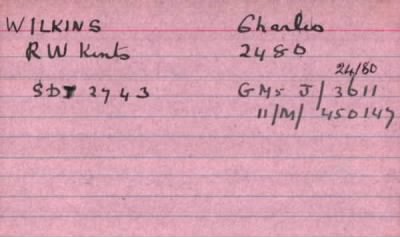 WILKINS Charles
R W Kents 2480
24/80
SD 2743 GMs J/3611
11/M/450147